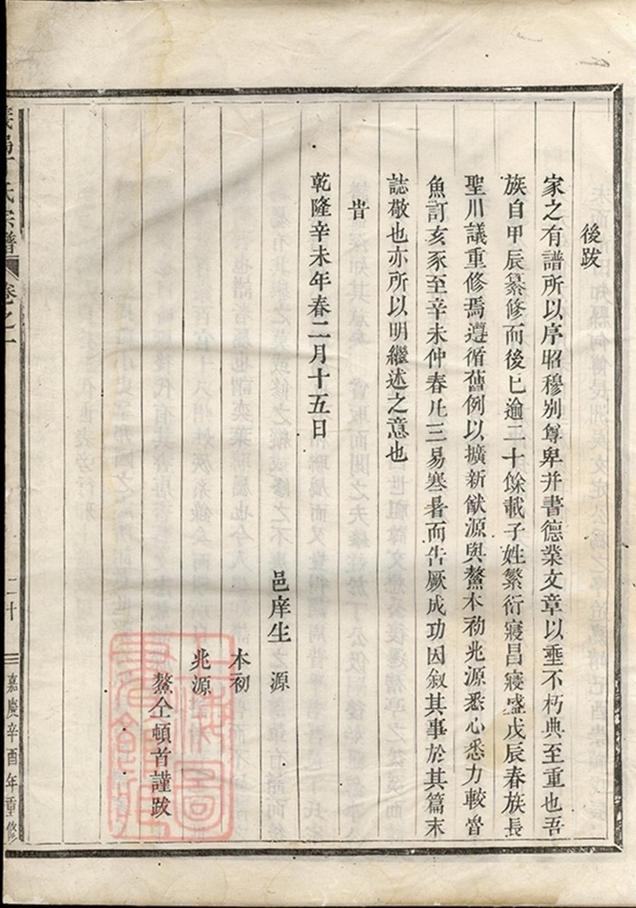 後跋
家之有譜所以序昭穆别尊卑并書德業文章以垂不朽典至重也吾
族自甲辰纂修而後已逾二十餘載子姓繁衍寢昌寢盛戊辰春族長
聖川議重修焉遵循舊例以擴新猷源與鰲本初兆源悉心悉力較晉
魚訂亥豕至辛未仲春凡三易寒暑而告厥成功因叙其事於其篇末
誌敬也亦所以明繼述之意也
旹
乾隆辛未年春二月十五日
邑庠生 源
本初
兆源
鰲仝頓首謹跋
氏宗譜 卷之一 二十 嘉慶辛酉年重修